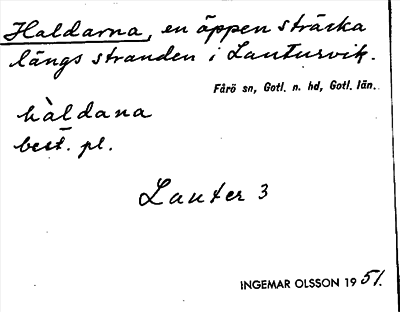 Haldarna, en öppen sträcka
längs stranden i Lautursvik.
Fårö sn, Gotl. n. hd, Gotl. län.
hàldana
best. pl.
Lauter 3
INGEMAR OLSSON 1951.